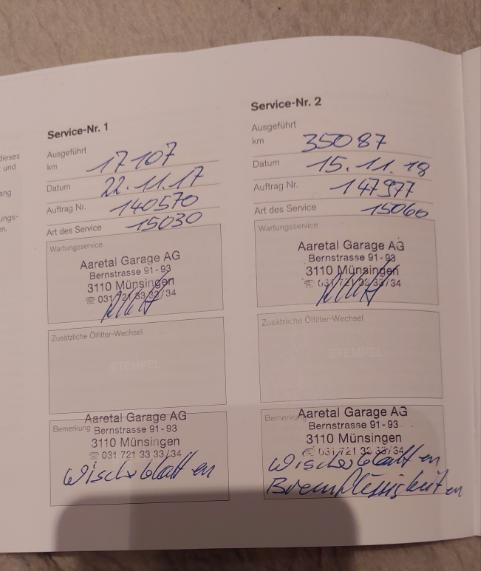 dieses
und
ang
ungs-
en.
Service-Nr. 1
Ausgeführt
km 17107
Datum 22.11.17
Auftrag Nr. 140570
Art des Service 15030
Wartungsservice
Aaretal Garage AG
Bernstrasse 91-93
3110 Münsingen
☏ 031 721 33 33/34
Zusätzliche Ölfilter-Wechsel
STEMPEL
Bemerkung
Aaretal Garage AG
Bernstrasse 91-93
3110 Münsingen
☏ 031 721 33 33/34
Wischerblatt en
Service-Nr. 2
Ausgeführt
km 35087
Datum 15.11.18
Auftrag Nr. 147977
Art des Service 15060
Wartungsservice
Aaretal Garage AG
Bernstrasse 91-93
3110 Münsingen
☏ 031 721 33 33/34
Zusätzliche Ölfilter-Wechsel
STEMPEL
Bemerkung
Aaretal Garage AG
Bernstrasse 91-93
3110 Münsingen
☏ 031 721 33 33/34
Wischerblatt en
Bremflüssigkeit en